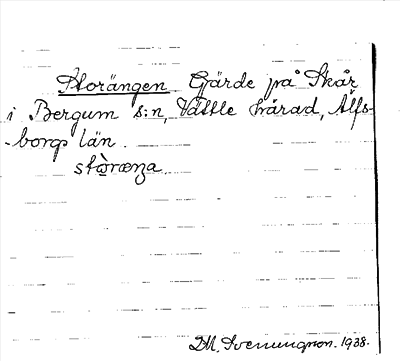 Storängen. Gärde på Skår
i Bergum s:n, Vättle härad, Älfs-
-borgs län.
stὼræŋa.
D.M. Svenungson. 1938.